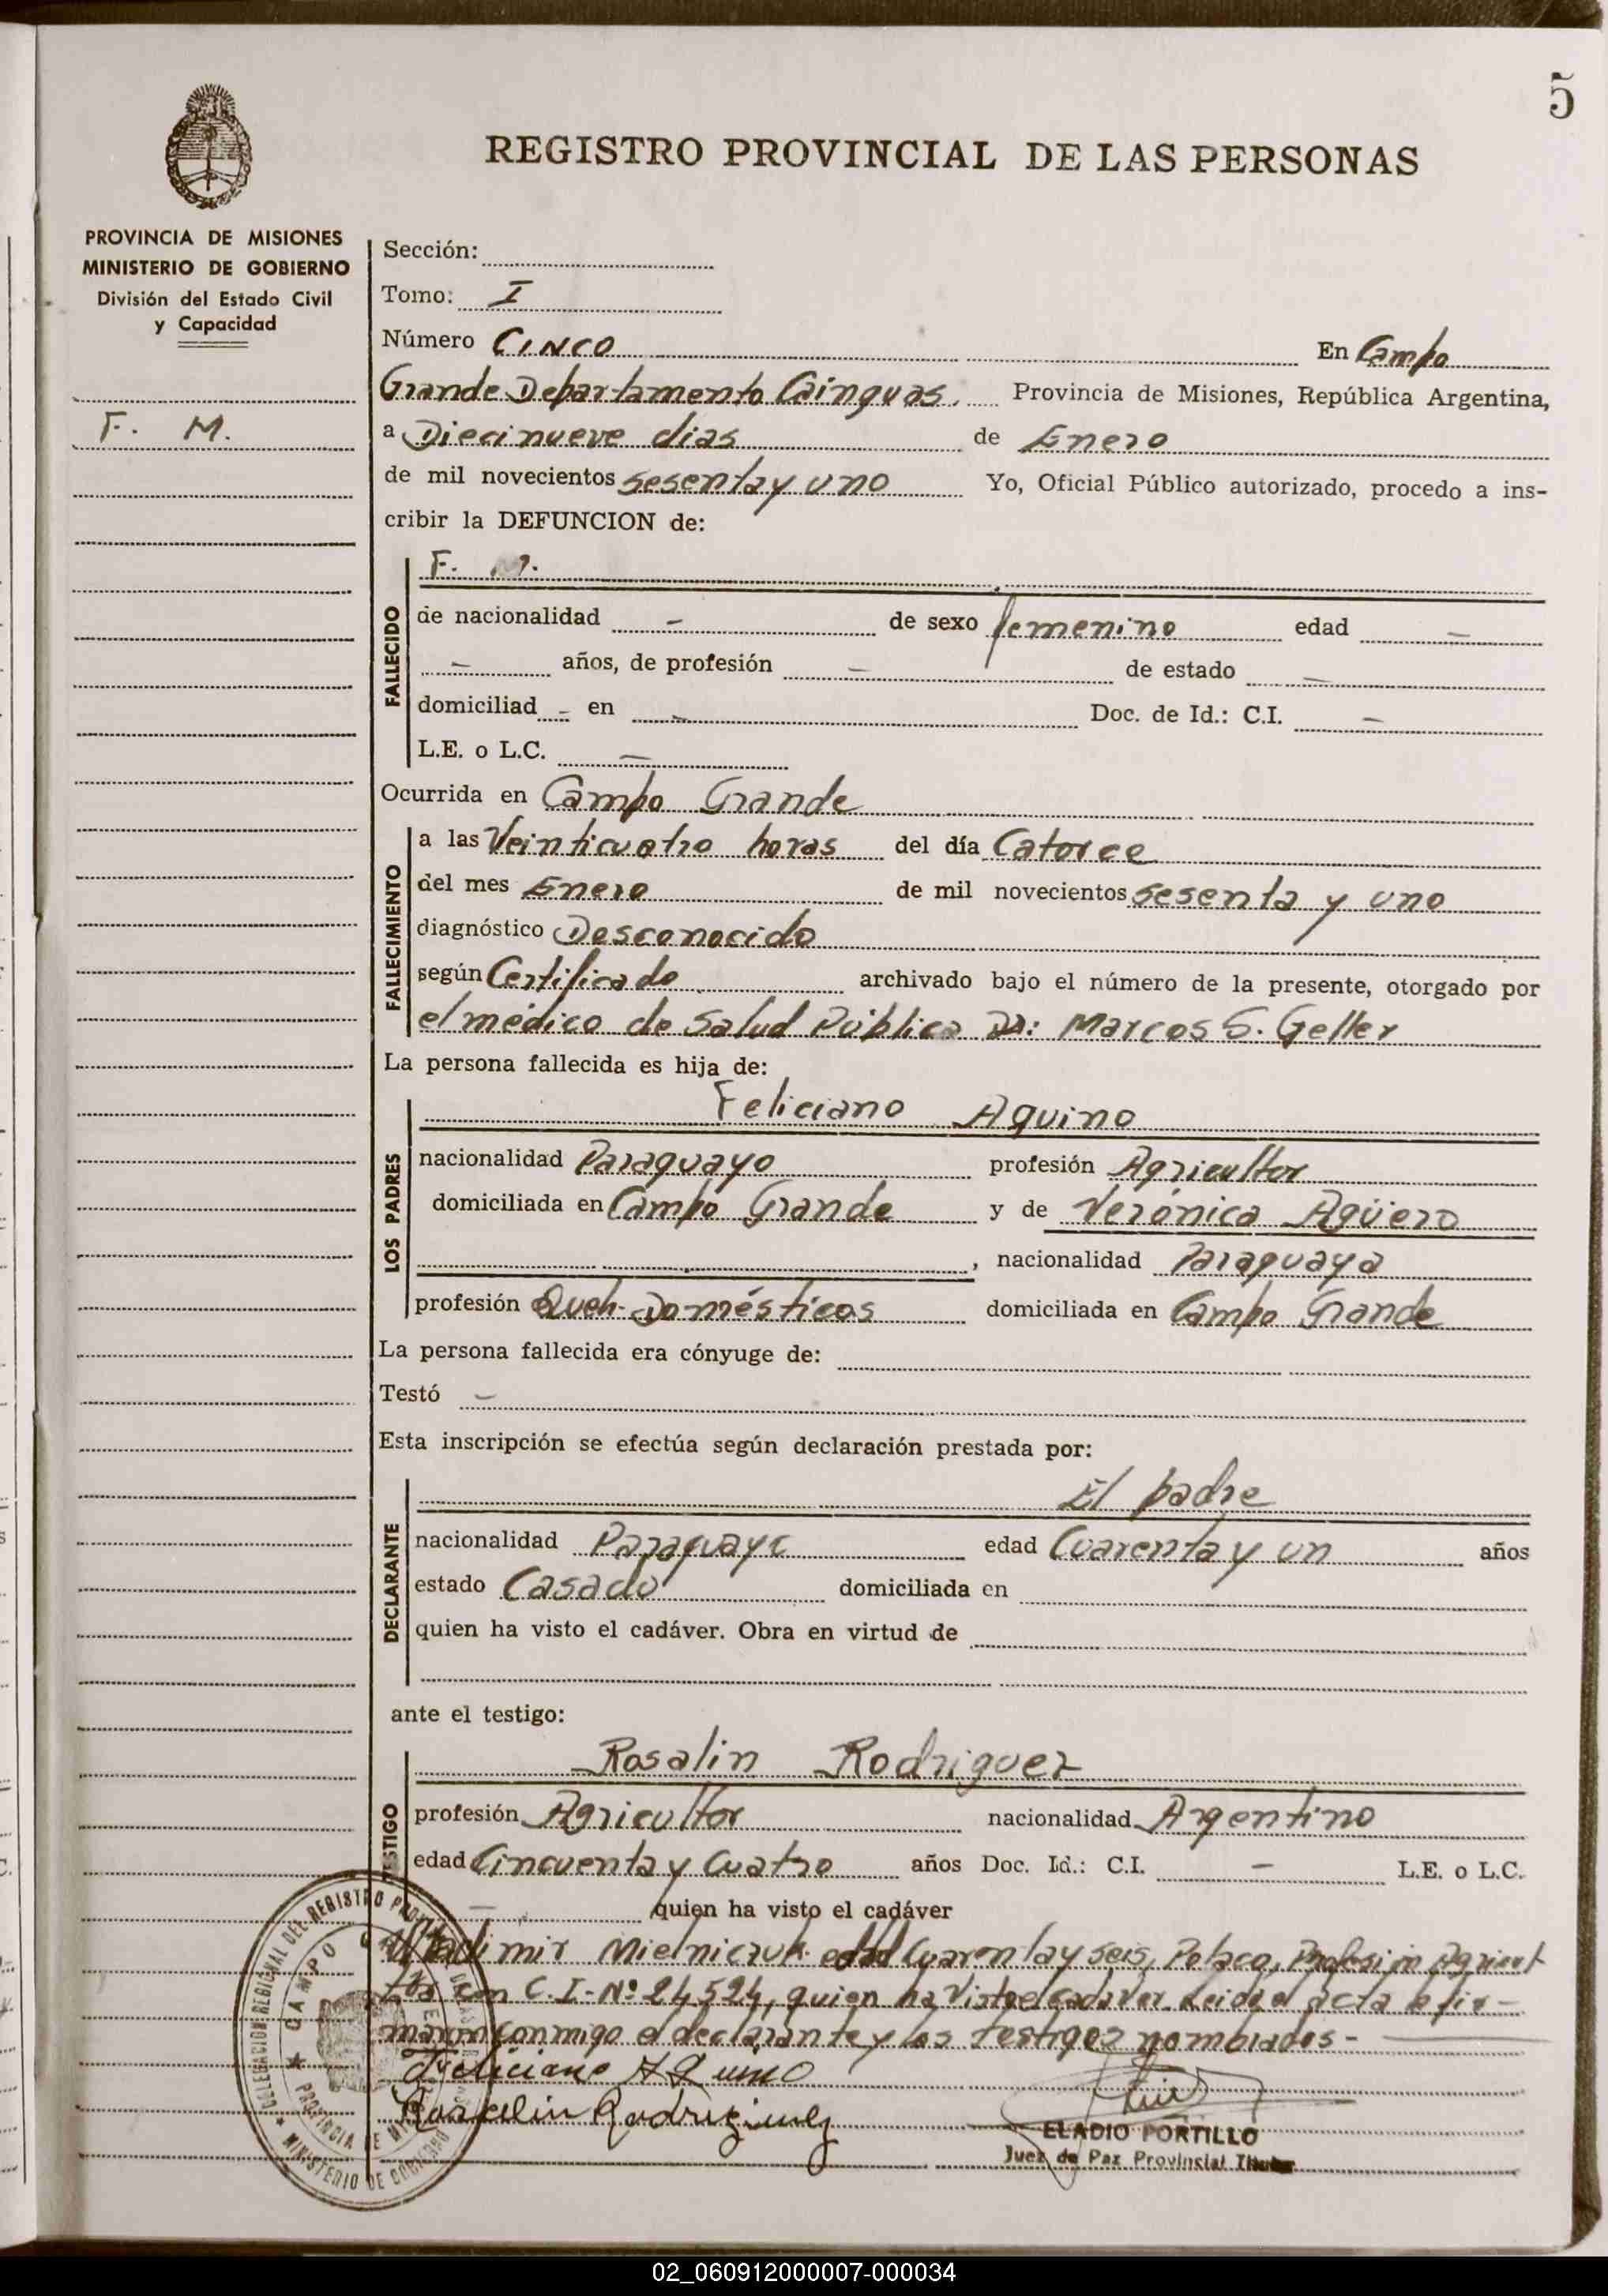 5
REGISTRO PROVINCIAL DE LAS PERSONAS
PROVINCIA DE MISIONES
MINISTERIO DE GOBIERNO
División del Estado Civil
y Capacidad
F. M.
Sección:
Tomo: I
Número Cinco En Campo
Grande Departamento Cainguas. Provincia de Misiones, República Argentina,
a Diecinueve dias de Enero
de mil novecientos sesenta y uno Yo, Oficial Público autorizado, procedo a ins-
cribir la DEFUNCION de:
FALLECIDO
F. M.
de nacionalidad - de sexo femenino edad -
- años, de profesión - de estado -
domiciliad - en - Doc. de Id.: C.I. -
L.E. o L.C. -
Ocurrida en Campo Grande
FALLECIMIENTO
a las Veinticuatro horas del día Catorce
del mes Enero de mil novecientos sesenta y uno
diagnóstico Desconocido
según Certificado archivado bajo el número de la presente, otorgado por
el médico de Salud Pública Dr: Marcos S. Geller
La persona fallecida es hija de:
LOS PADRES
Feliciano Aquino
nacionalidad Paraguayo profesión Agricultor
domiciliada en Campo Grande y de Verónica Agüero
, nacionalidad Paraguaya
profesión Queh. Domésticos domiciliada en Campo Grande
La persona fallecida era cónyuge de:
Testó -
Esta inscripción se efectúa según declaración prestada por:
DECLARANTE
El padre
nacionalidad Paraguayo edad Cuarenta y un años
estado Casado domiciliada en
quien ha visto el cadáver. Obra en virtud de
ante el testigo:
TESTIGO
Rosalin Rodriguez
profesión Agricultor nacionalidad Argentino
edad Cincuenta y Cuatro años Doc. Id.: C.I. - L.E. o L.C.
- quien ha visto el cadáver
Mielniczuk edad Cuarenta y seis, Polaco, Profesión Agricul
tor con C.I-Nº 24524, quien ha visto el cadaver. Leida el acta la fir-
maron conmigo el declarante y los testigos nombrados-
Feliciano Aquino
Roselin Rodriguez
ELADIO PORTILLO
Juez de Paz Provincial Titular
DELEGACION REGIONAL DEL REGISTRO
CAMPO
PROVINCIA DE
MINISTERIO DE GOBIERNO
02_060912000007-000034